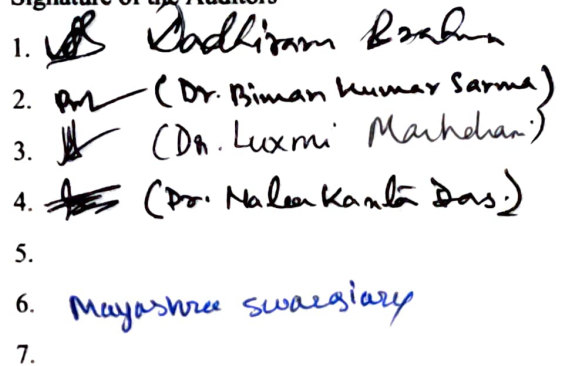 Signature of the Auditors
1. Dadhiram Brahma
2. (Dr. Biman Kumar Sarma)
3. (Dr. Luxmi
4. (Dr. Kanta Das.)
5.
6. Mayashree swargiary
7.